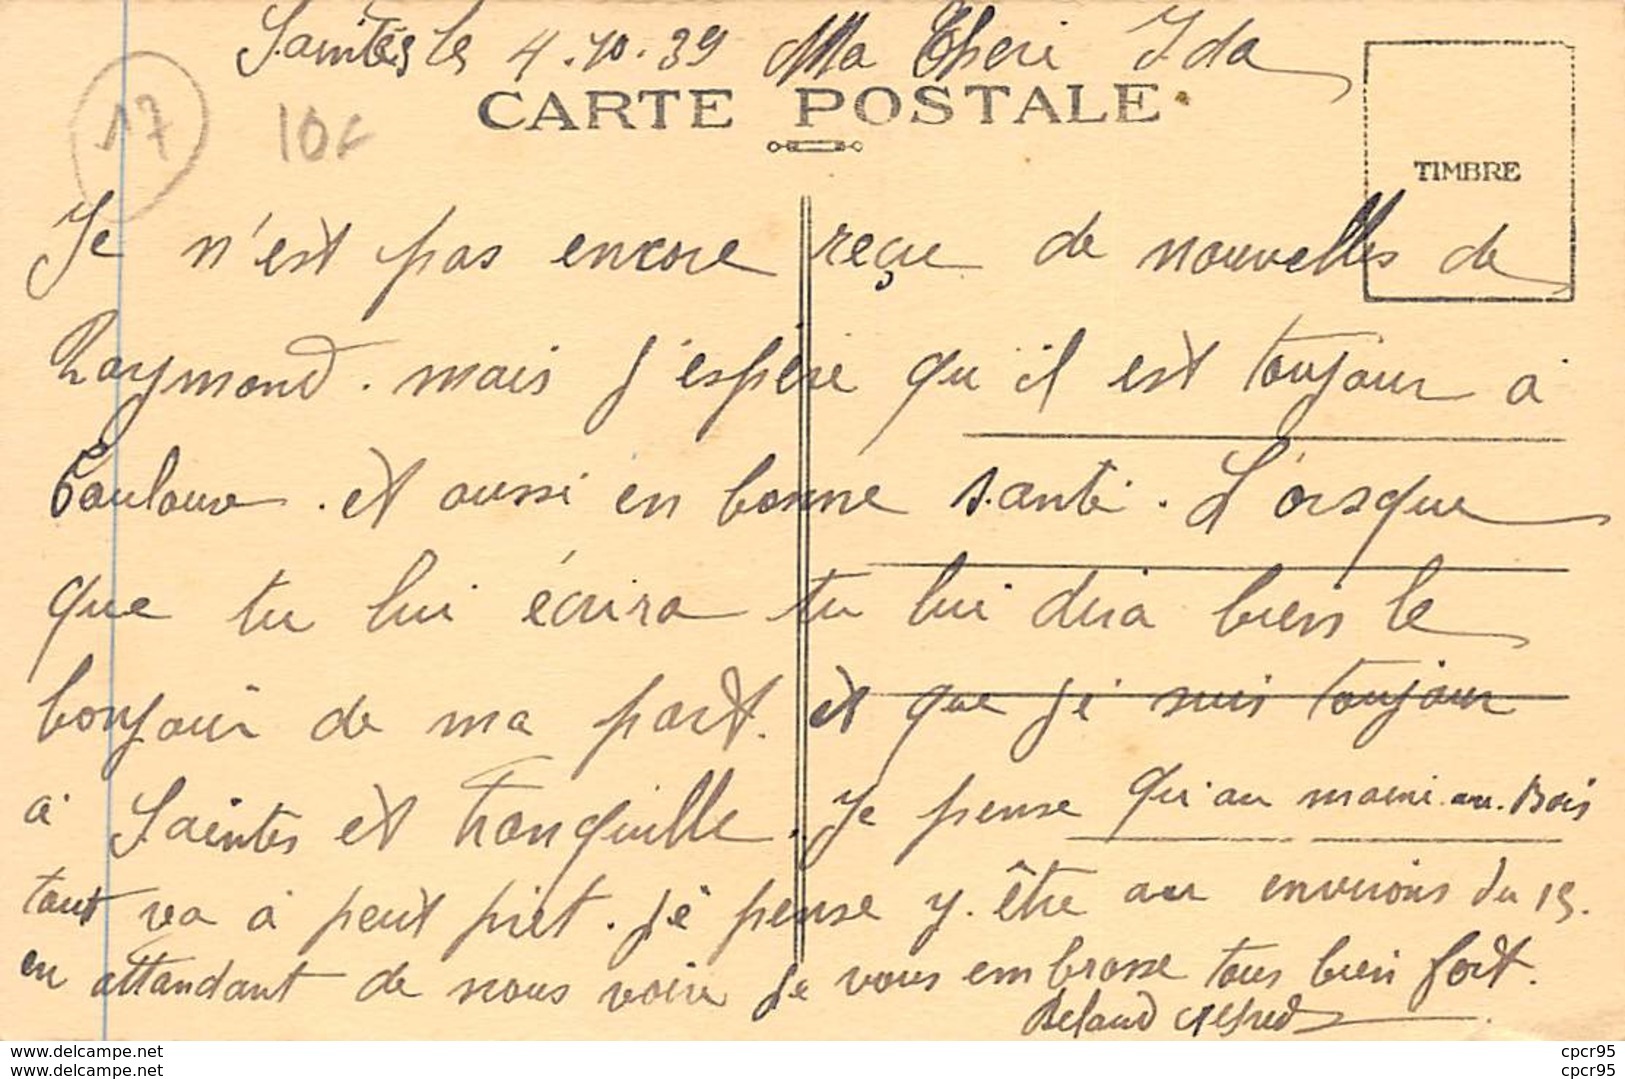 Saintes le 4.10.39 Ma Cheri Ida
CARTE POSTALE
TIMBRE
17
10f
Je n'est pas encore reçue de nouvelles de
Raymond. mais j'espère qu'il est toujour à
Toulouse. et aussi en bonne santé. L'orsque
que tu lui écrira tu lui dira bien le
bonjour de ma part. et que je suis toujour
à Saintes et tranquille. Je pense qu'au au Bois
tout va à peut prêt. je pense y être au environs du 15.
en attandant de nous voire je vous embrasse tous bien fort.
Alfred
cpcr95
cpcr95
www.delcampe.net
www.delcampe.net